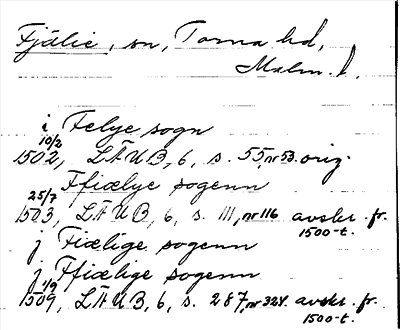 Fjälie, sn, Torna hd,
Malm. l.
i Felye sogn
10/2
1502, LÄUB, 6, s. 55, nr 53. orig.
Ffiælye sogenn
25/7
1503, LÄUB, 6, s. 111, nr 116 avskr. fr.
1500-t.
j Fiælige sogenn
j Ffiælige sogenn
1/9
1509, LÄUB, 6, s. 287, nr 324. avskr. fr.
1500-t.